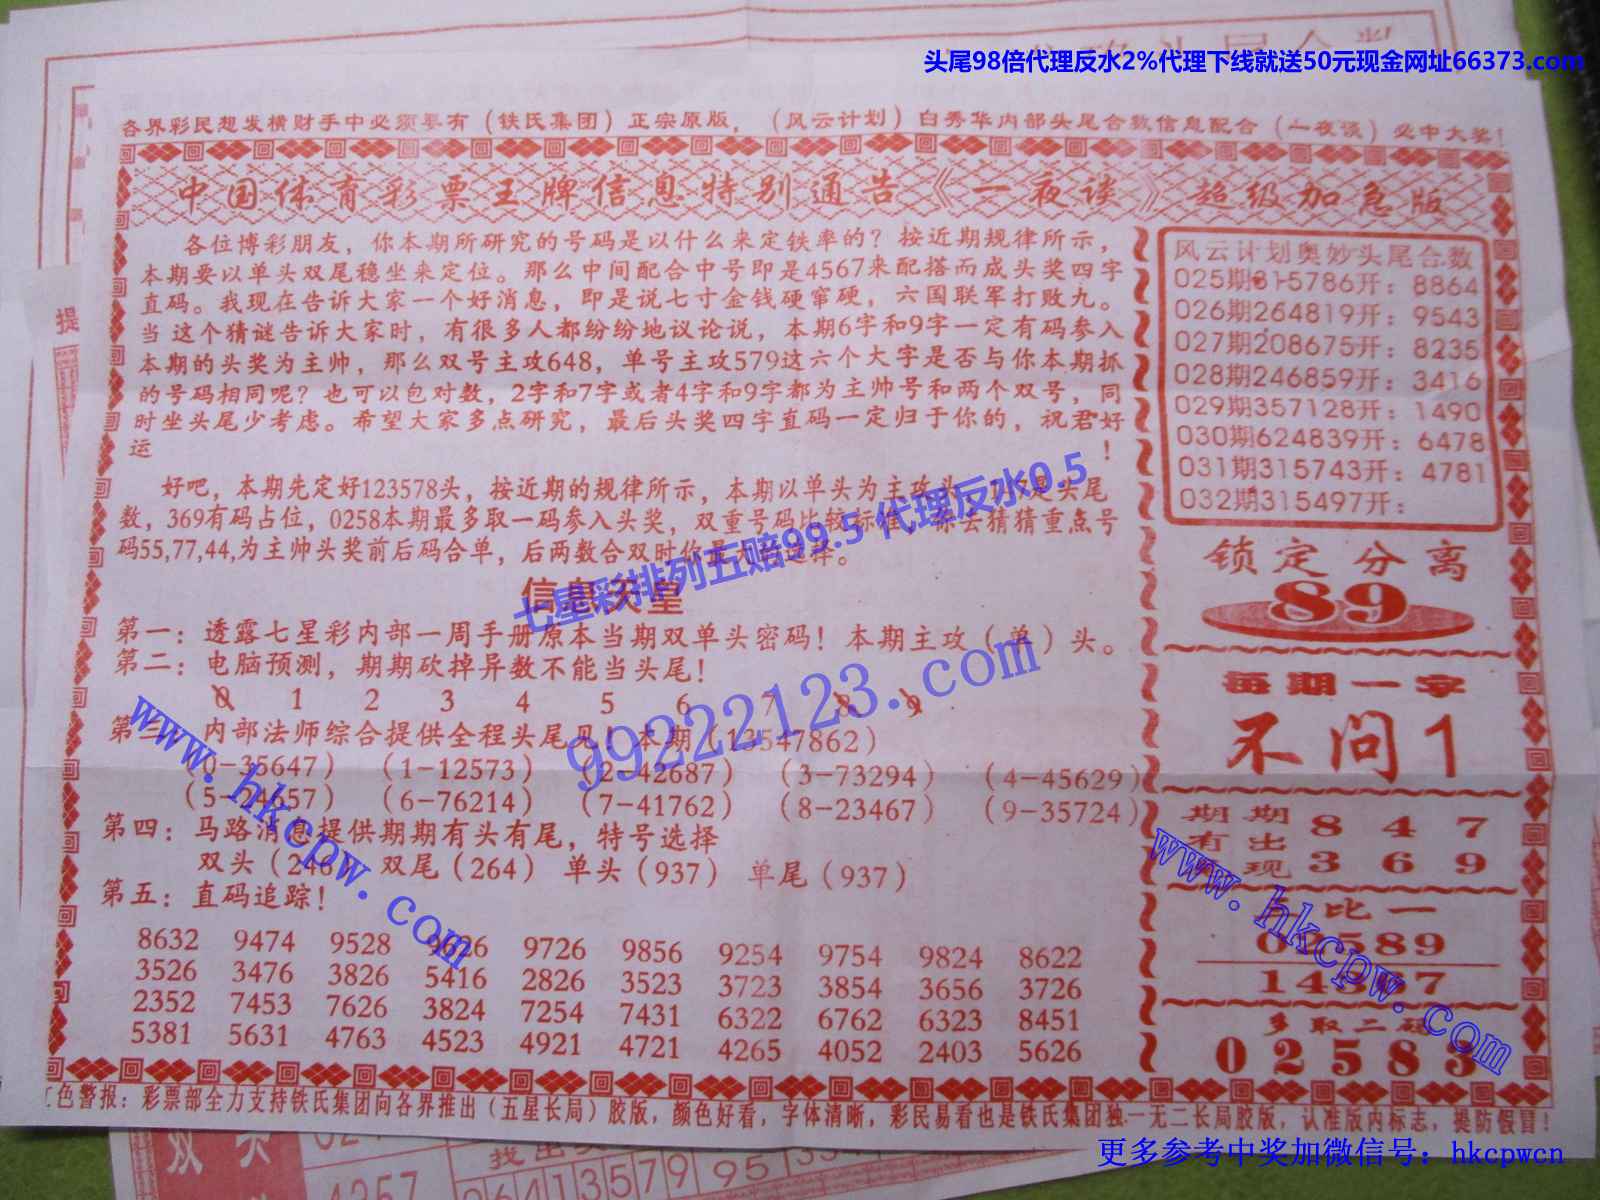 头尾98倍代理反水2%代理下线就送50元现金网址66373.com
各界彩民想发横财手中必须要有（铁氏集团）正宗原版，（风云计划）白秀华内部头尾合数信息配合（一夜谈）必中大奖！
中国体育彩票王牌信息特别通告《一夜谈》超级加急版
各位博彩朋友，你本期所研究的号码是以什么来定铁率的？按近期规律所示，
本期要以单头双尾稳坐来定位。那么中间配合中号即是4567来配搭而成头奖四字
直码。我现在告诉大家一个好消息，即是说七寸金钱硬窜硬，六国联军打败九。
当 这个猜谜告诉大家时，有很多人都纷纷地议论说，本期6字和9字一定有码参入
本期的头奖为主帅，那么双号主攻648，单号主攻579这六个大字是否与你本期抓
的号码相同呢？也可以包对数，2字和7字或者4字和9字都为主帅号和两个双号，同
时坐头尾少考虑。希望大家多点研究，最后头奖四字直码一定归于你的，祝君好
运！
好吧，本期先定好123578头，按近期的规律所示，本期以单头为主攻头，是头尾
数，369有码占位，0258本期最多取一码参入头奖，双重号码比较标准，你去猜猜重点号
码55,77,44,为主帅头奖前后码合单，后两数合双时你最大的选择。
信息天皇
第一：透露七星彩内部一周手册原本当期双单头密码！本期主攻（单）头。
第二：电脑预测，期期砍掉异数不能当头尾！
0 1 2 3 4 5 6 7 8 9
第三：内部法师综合提供全程头尾见！本期（13547862）
（0-35647）（1-12573）（2-42687）（3-73294）（4-45629）
（5-24657）（6-76214）（7-41762）（8-23467）（9-35724）
第四：马路消息提供期期有头有尾，特号选择
双头（246）双尾（264）单头（937）单尾（937）
第五：直码追踪！
8632 9474 9528 9626 9726 9856 9254 9754 9824 8622
3526 3476 3826 5416 2826 3523 3723 3854 3656 3726
2352 7453 7626 3824 7254 7431 6322 6762 6323 8451
5381 5631 4763 4523 4921 4721 4265 4052 2403 5626
风云计划奥妙头尾合数
025期315786开：8864
026期264819开：9543
027期208675开：8235
028期246859开：3416
029期357128开：1490
030期624839开：6478
031期315743开：4781
032期315497开：
锁定分离
89
每期一字
不问1
期期 8 4 7
有出
现 3 6 9
比一
589
多取二码
02583
红色警报：彩票部全力支持铁氏集团向各界推出（五星长局）胶版，颜色好看，字体清晰，彩民易看也是铁氏集团独一无二长局胶版，认准版内标志，提防假冒！
七星彩排列五赔99.5 代理反水0.5
99222123.com
www.hkcpw.com
www.hkcpw.com
更多参考中奖加微信号：hkcpwcn
提
双
4257
06413579
95